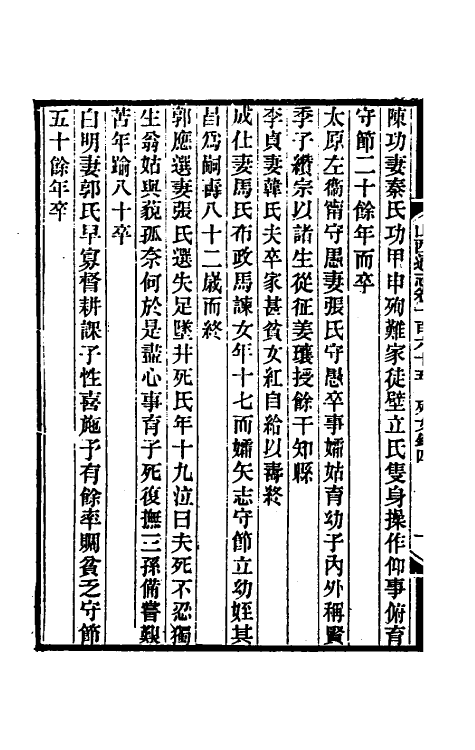 陳功妻秦氏功甲申殉難家徒壁立氏隻身操作仰事俯育
守節二十餘年而卒
太原左衞甯守愚妻張氏守愚卒事孀姑育幼子內外稱賢
季子纘宗以諸生從征姜瓖授餘干知縣
李貞妻韓氏夫卒家甚貧女紅自給以壽終
成仕妻馬氏布政馬諫女年十七而孀矢志守節立幼姪其
昌爲嗣壽八十二歲而終
郭應選妻張氏選失足墜井死氏年十九泣曰夫死不忍獨
生翁姑與藐孤奈何於是盡心事育子死復撫三孫備嘗艱
苦年踰八十卒
白明妻郭氏早寡督耕課子性喜施予有餘率賙貧乏守節
五十餘年卒
山西通志卷一百六十五 列女錄四 一